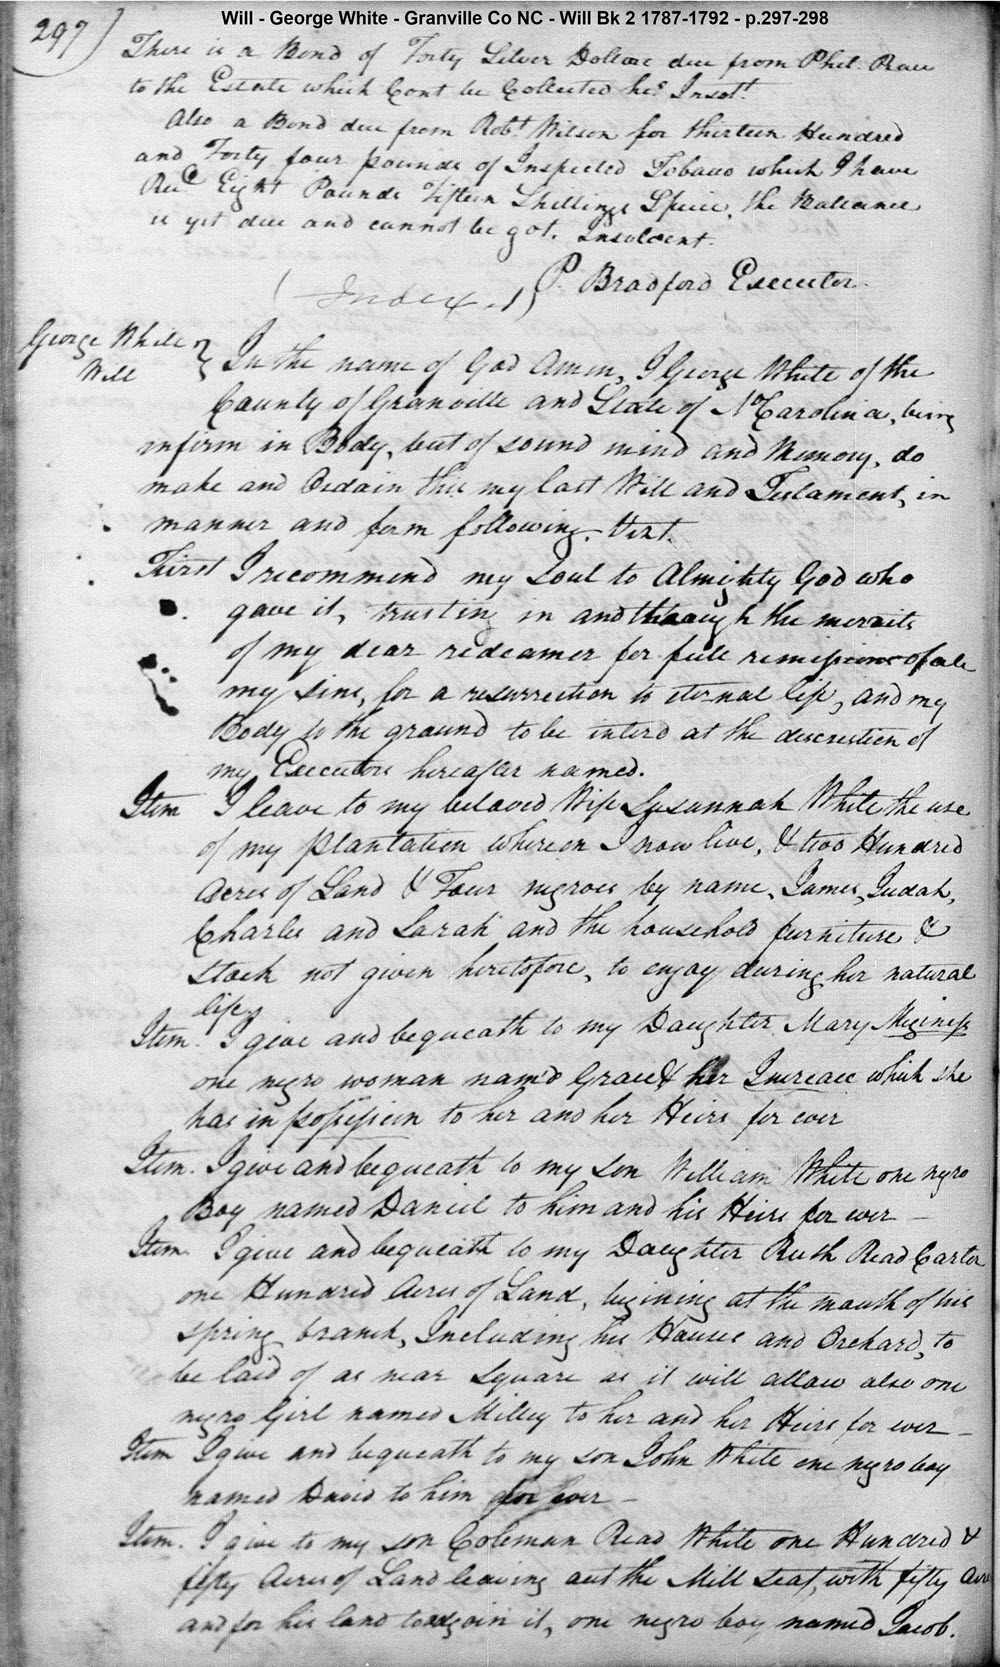 Will - George White - Granville Co NC - Will Bk 2 1787-1792 - p.297-298
297
There is a Bond of Forty Silver Dollars due from Phil.
to the Estate which Cont be Collected he's Insolt.
Also a Bond due from Robt. Wilson for thirteen Hundred
and Forty four pounds of Inspected Tobacco which I have
Recd. Eight Pounds Fifteen Shillings Specie, the Ballance
is yet due and cannot be got. Insolvent.
P. Bradford Executor.
(Index.1)
George White
Will
In the name of God Amen, I George White of the
County of Granville and State of No Carolina, being
infirm in Body, but of sound mind and Memory, do
make and Ordain this my last Will and Testament, in
manner and form following. Vizt.
First I recommend my Soul to Almighty God who
gave it, trusting in and through the merrits
of my dear redeamer for full remission of all
my sins, for a resurrection to eternal life, and my
Body to the ground to be interd at the descrestion of
my Executors hereafter named.
Item I leave to my beloved Wife Susannah White the use
of my plantation whereon I now live, & two Hundred
Acres of Land & Four negroes by name, James, Judah,
Charles and Sarah and the household furniture &
stock not given heretofore, to enjoy during her natural
life,
Item. I give and bequeath to my Daughter Mary Miginess
one negro woman nam'd Grace & her Increace which she
has in possession to her and her Heirs for ever
Item. I give and bequeath to my son William White one negro
Boy named Daniel to him and his Heirs for ever —
Item. I give and bequeath to my Daughter Ruth Read Carter
one Hundred Acres of Land, begining at the mouth of his
spring branch, Including his Houses and Orchard, to
be laid of as near Square as it will allow also one
negro Girl named Milley to her and her Heirs for ever —
Item I give and bequeath to my son John White one negro boy
named David to him for ever —
Item. I give to my son Coleman Read White one Hundred &
fifty Acres of Land leaving out the Mill seat, with fifty
and for his land to adjoin it, one negro boy named Jacob.